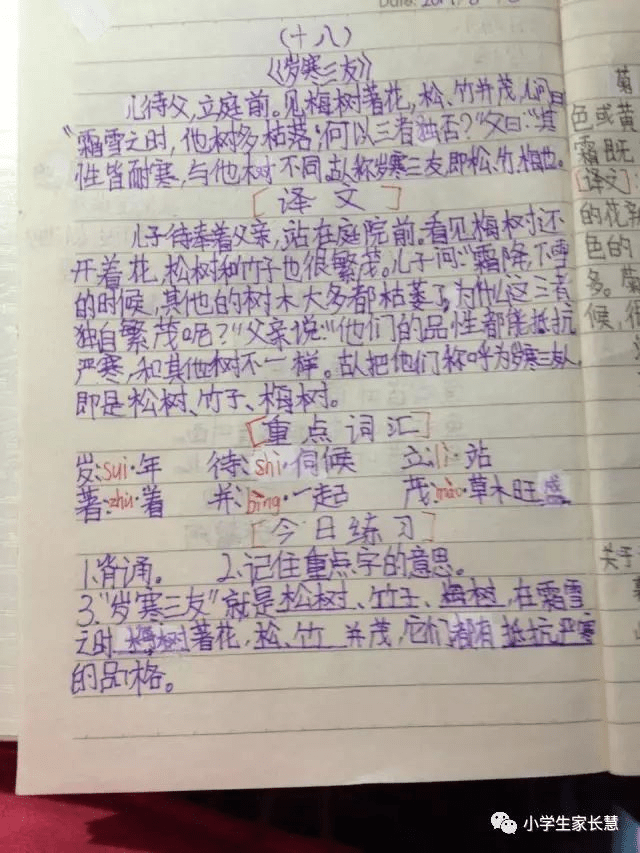 (十八)
《岁寒三友》
儿待父,立庭前。见梅树著花,松、竹并茂,儿问曰
"霜雪之时,他树多枯落,何以三者独否?"父曰:"其
性皆耐寒,与他树不同。古人称岁寒三友,即松、竹、梅也。
[译文]
儿子待奉着父亲,站在庭院前。看见梅树还
开着花,松树和竹子也很繁茂。儿子问:"霜降、下雪
的时候,其他的树木大多都枯萎了,为什么这三者
独自繁茂呢?"父亲说:"他们的品性都能抵抗
严寒,和其他树不一样。古人把他们称呼为岁寒三友,
即是松树、竹子、梅树。
[重点词汇]
岁:suì·年 待:shì·伺候 立:lì·站
著:zhù·着 并:bìng·一起 茂:mào·草木旺盛
[今日练习]
1.背诵。 2.记住重点字的意思。
3."岁寒三友"就是松树、竹子、梅树,在霜雪
之时 梅树著花,松、竹 并茂,它们都有 抵抗严寒
的品格。
菊
色或黄
霜既
[译文]
的花
色的
多。菊
候,
关于
小学生家长慧